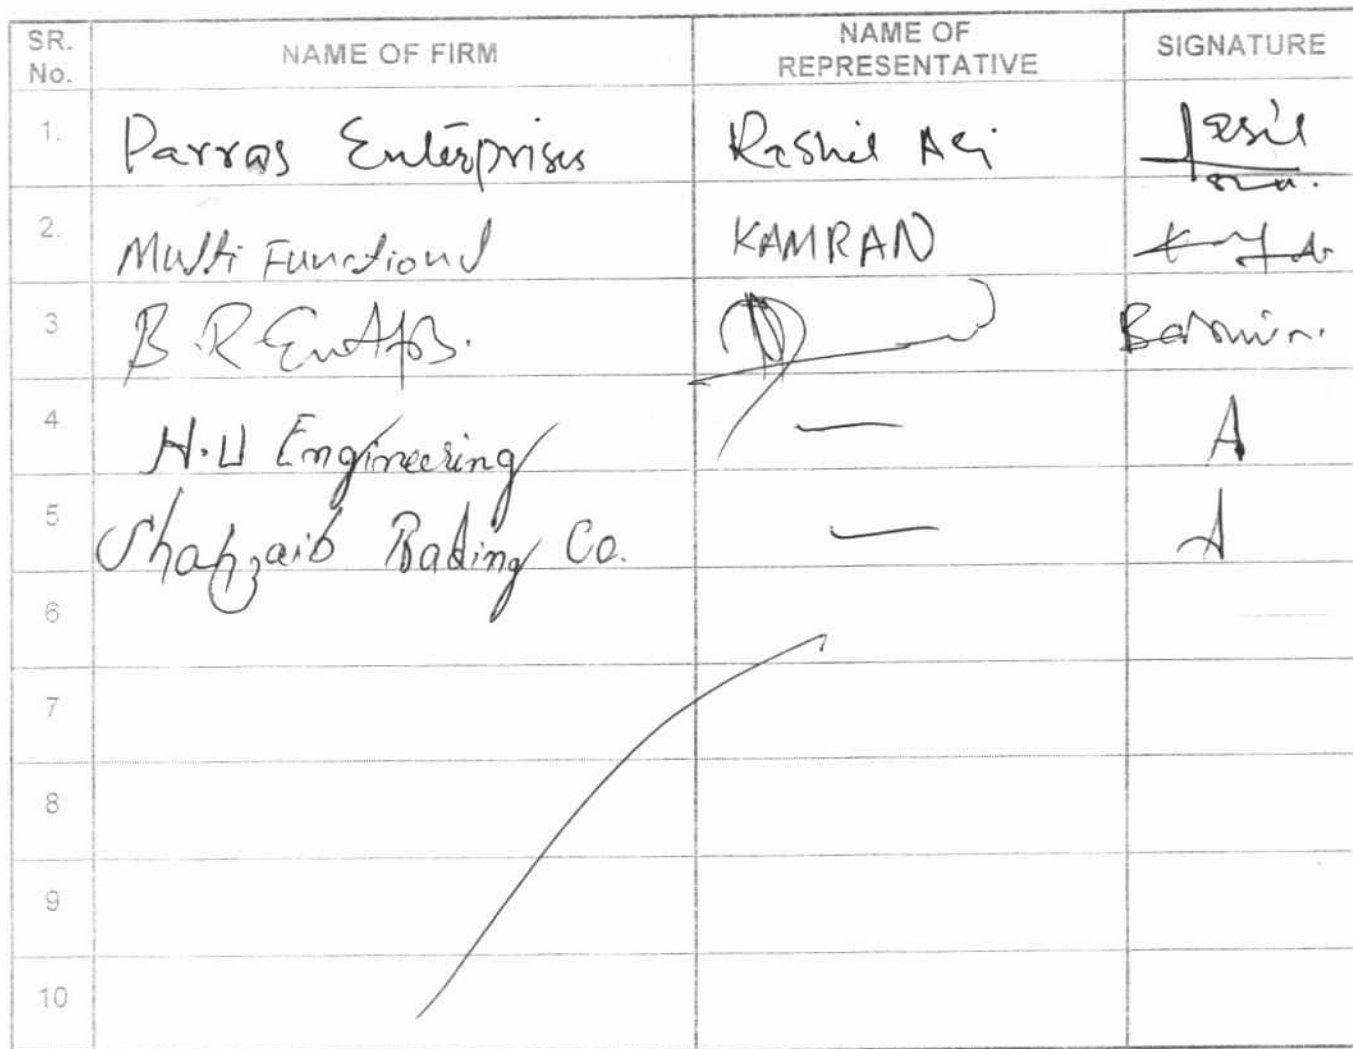 SR. No. NAME OF FIRM NAME OF REPRESENTATIVE SIGNATURE
1. Parras Enterprises Rashid Ali
2. Multi Functional KAMRAN
3 B.R
4 H.U Engineering — A
5 Shahzaib Trading Co. — A
6
7
8
9
10